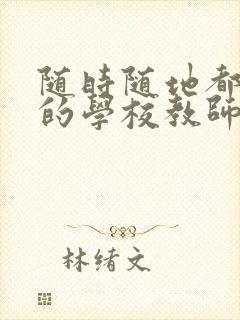 随時随地都
的學校教師
林绪文